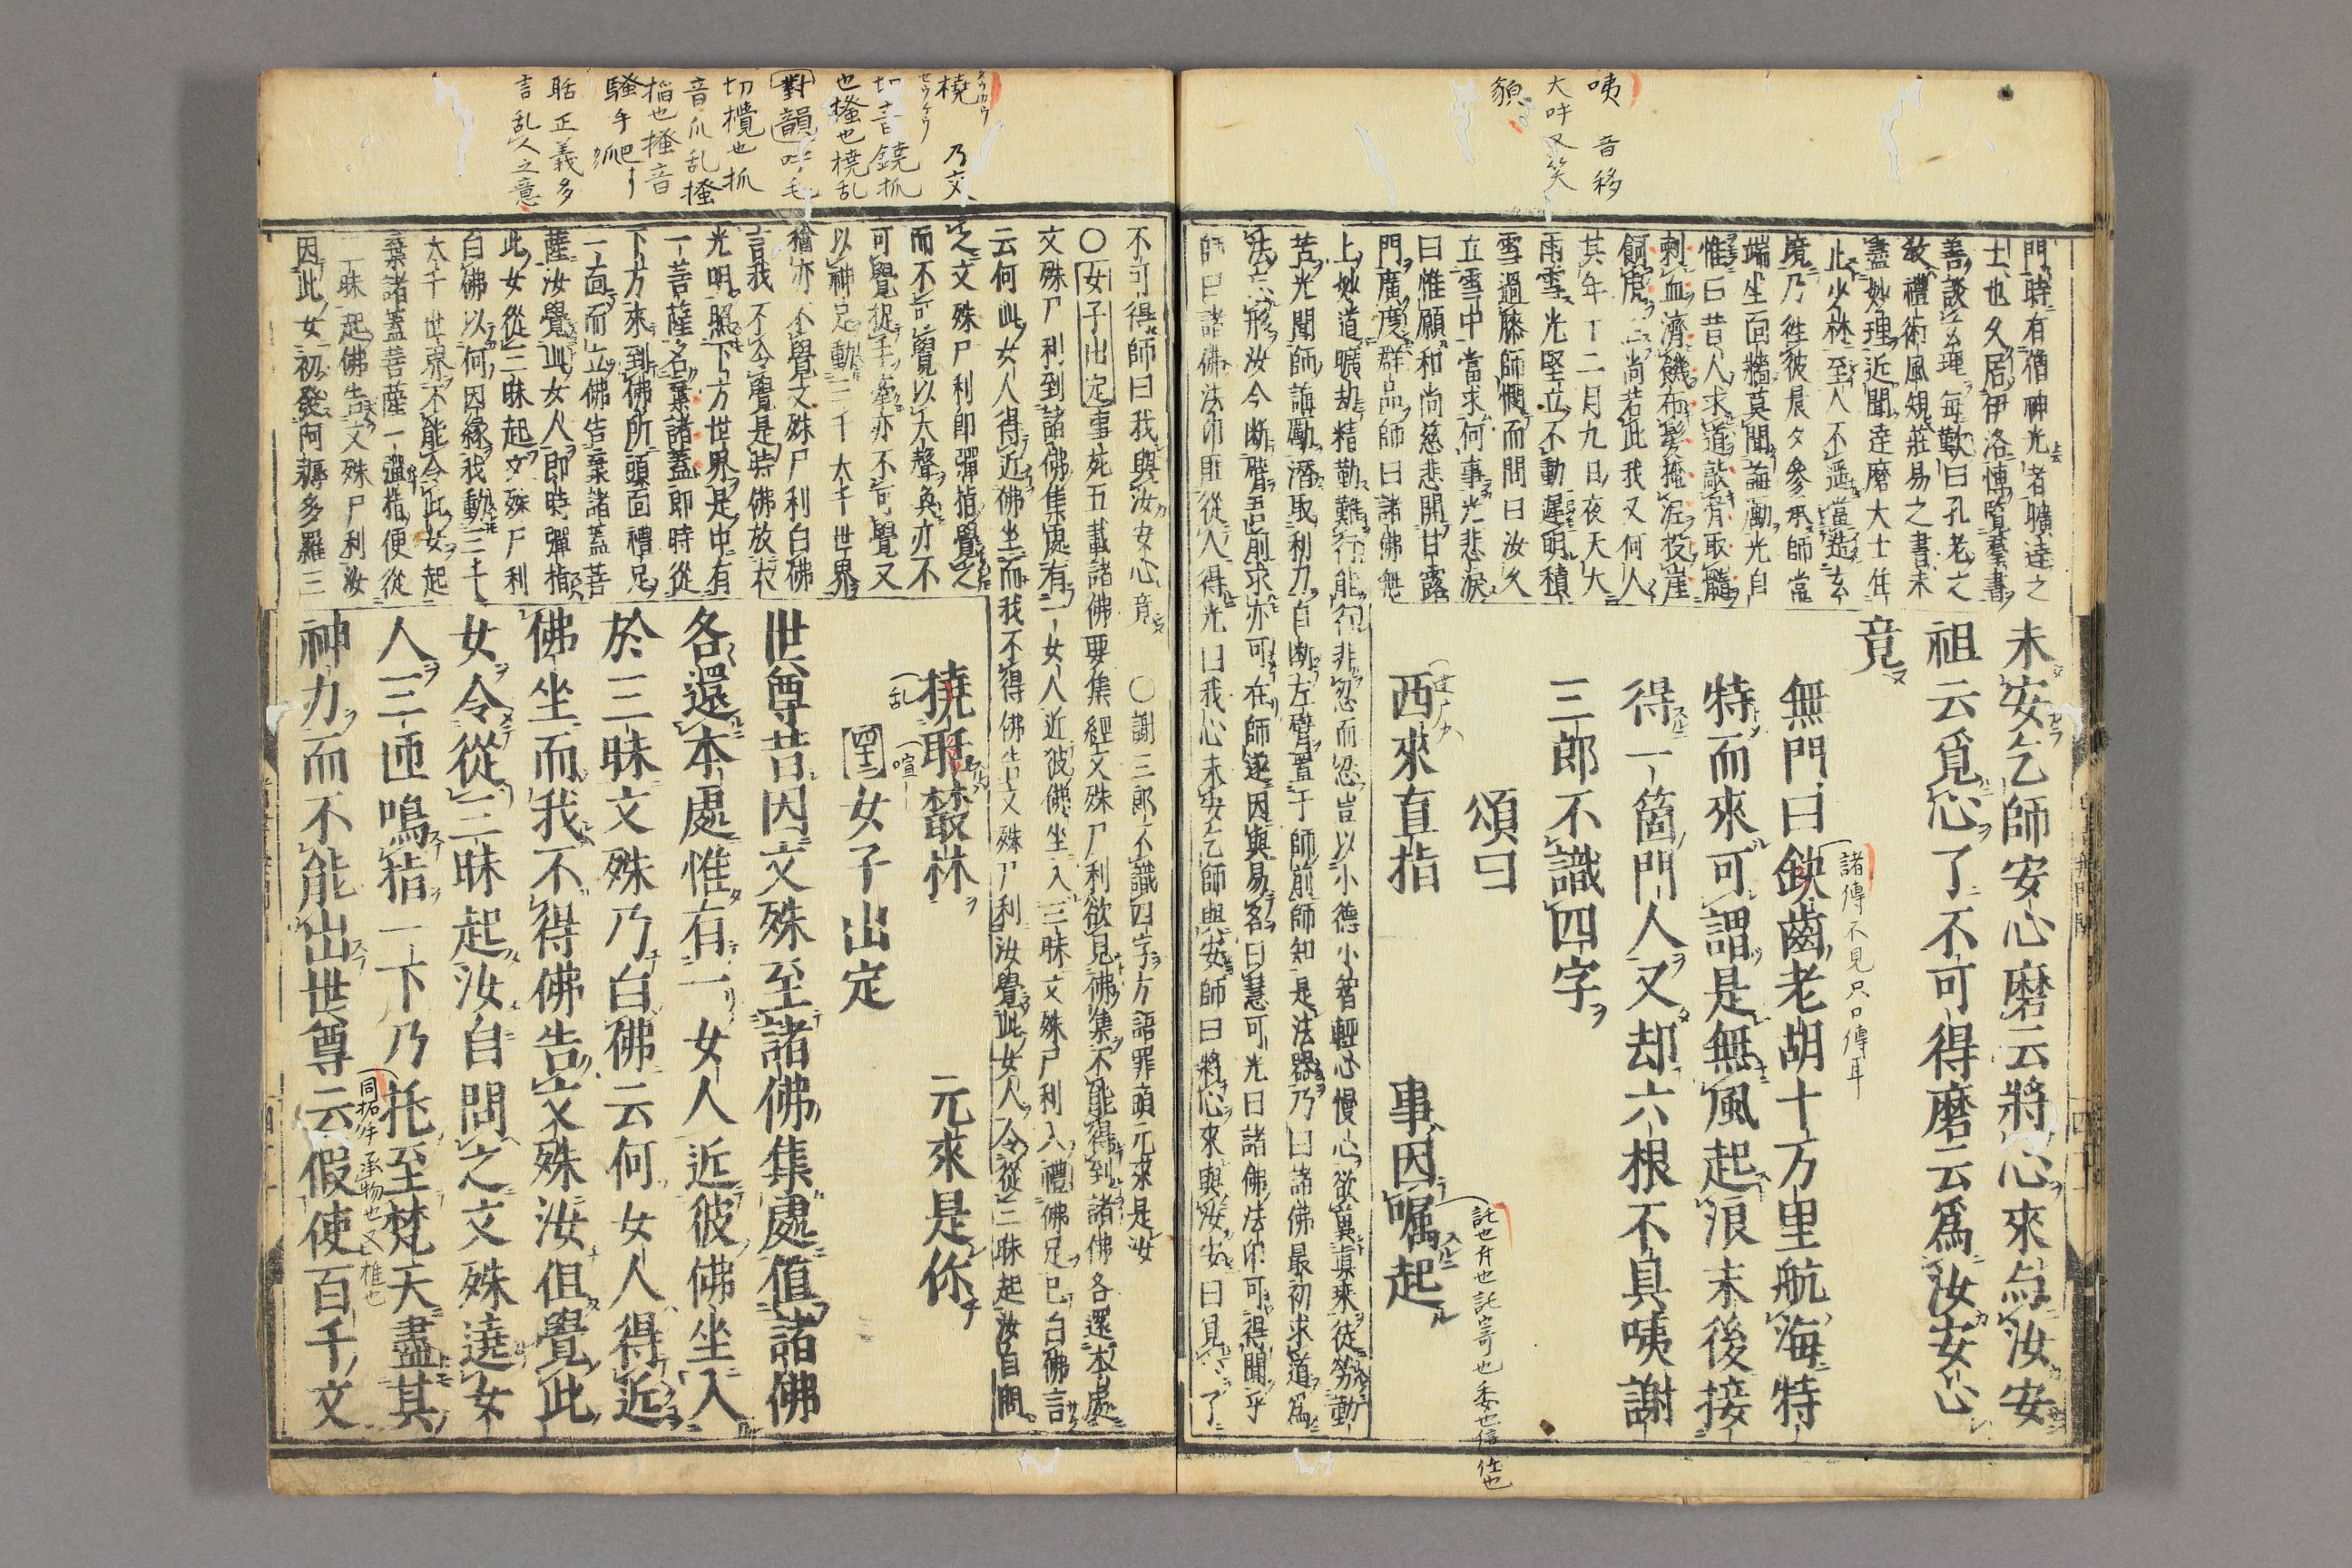 咦 音移
大呼又笑
貌
門時有僧神光者曠達之
士也久居伊洛博覧羣書
善談玄理毎歎曰孔老之
教禮術風規莊易之書未
盡妙理近聞達磨大士住
止少林至人不遥當造玄
境乃徃彼晨夕參承師當
端坐面牆莫聞誨勵光自
惟曰昔人求道敲骨取髓
刺血濟饑布髪掩泥投崖
飼虎古尚若此我又何人
其年十二月九日夜天大
雨雪光堅立不動遲明積
雪過膝師憫而問曰汝久
立雪中當求何事光悲淚
曰惟願和尚慈悲開甘露
門廣度群品師曰諸佛無
上妙道曠劫精勤難行能行非忍而忍豈以小德小智輕心慢心欲冀真乘徒勞勤
苦光聞師誨勵潛取利刀自断左臂置于師前師知是法器乃曰諸佛最初求道為
法忘形汝今断臂吾前求亦可在師遂因與易名曰慧可光曰諸佛法印可得聞乎
師曰諸佛法印匪從人得光曰我心未安乞師與安師曰將心來與汝安曰見
未安乞師安心磨云將心來与汝安
祖云覓心了不可得磨云爲汝安心
竟
無門曰缺齒老胡十万里航海特
諸傳不見只口傳耳
特而來可謂是無風起浪末後接
得一箇門人又却六根不具咦謝
三郎不識四字
頌曰
西來直指 事因囑起
託也付也託寄也委也信任也
橈 乃交
切音鐃抓
也搔也橈乱
對韻呼毛
切攪也抓
音爪乱搔
搯也搔音
騒手爬
聒正義多
言乱人之意
不可得師曰我與汝安心竟 ○謝三郎不識四字方語罪頭元來是汝
○女子出定事苑五載諸佛要集經文殊尸利欲見佛集不能得到諸佛各還本處
文殊尸利到諸佛集處有一女人近彼佛坐入三昧文殊尸利入禮佛足已白佛言
云何此女人得近佛坐而我不得佛告文殊尸利汝覺此女人令從三昧起汝自問
之文殊尸利即彈指覺之
而不可覺以大聲喚亦不
可覺捉手牽亦不可覺又
以神足動三千大千世界
猶亦不覺文殊尸利白佛
言我不令覺是時佛放大
光明照下方世界是中有
一菩薩名棄諸蓋即時從
下方來到佛所頭面禮足
一面而立佛告棄諸蓋菩
薩汝覺此女人即時彈指
此女從三昧起文殊尸利
白佛以何因緣我動三千
大千世界不能令此女起
棄諸蓋菩薩一彈指便從
三昧起佛告文殊尸利汝
因此女初發阿耨多羅三
撓聒叢林 元來是你
乱 喧
四十二 女子出定
世尊昔因文殊至諸佛集處値諸佛
各還本處惟有一女人近彼佛坐入
於三昧文殊乃白佛云何女人得近
佛坐而我不得佛告文殊汝但覺此
女令從三昧起汝自問之文殊遶女
人三匝鳴指一下乃托至梵天盡其
同拓手承物也又推也
神力而不能出世尊云假使百千文